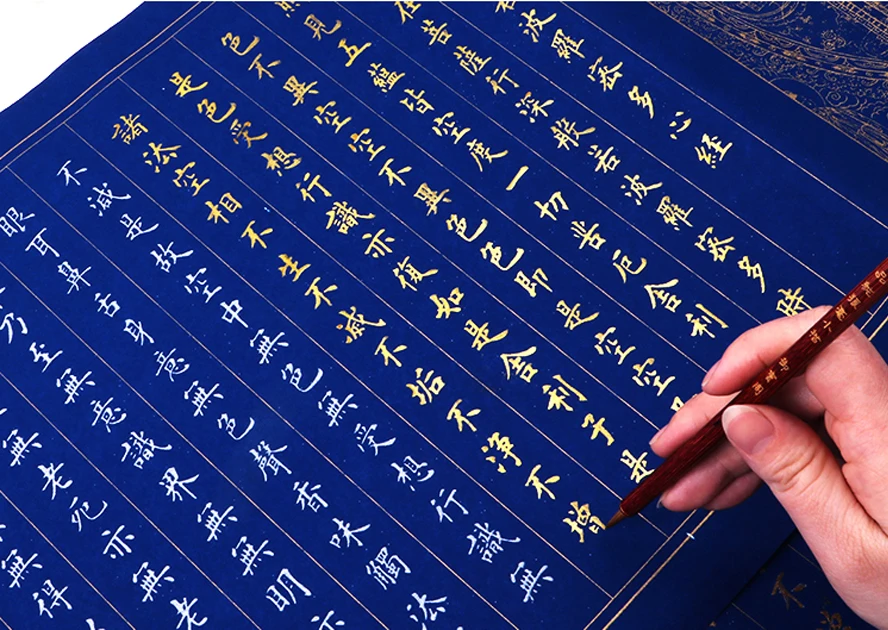 波羅蜜多心経
在菩薩行深般若波羅蜜多時
照見五蘊皆空度一切苦厄舍利
色不異空空不異色色即是空空
是色受想行識亦復如是舍利子是
諸法空相不生不滅不垢不淨不增
不減是故空中無色無受想行識無
眼耳鼻舌身意無色聲香味觸法
乃至無意識界無無明亦
無老死亦無老
無得